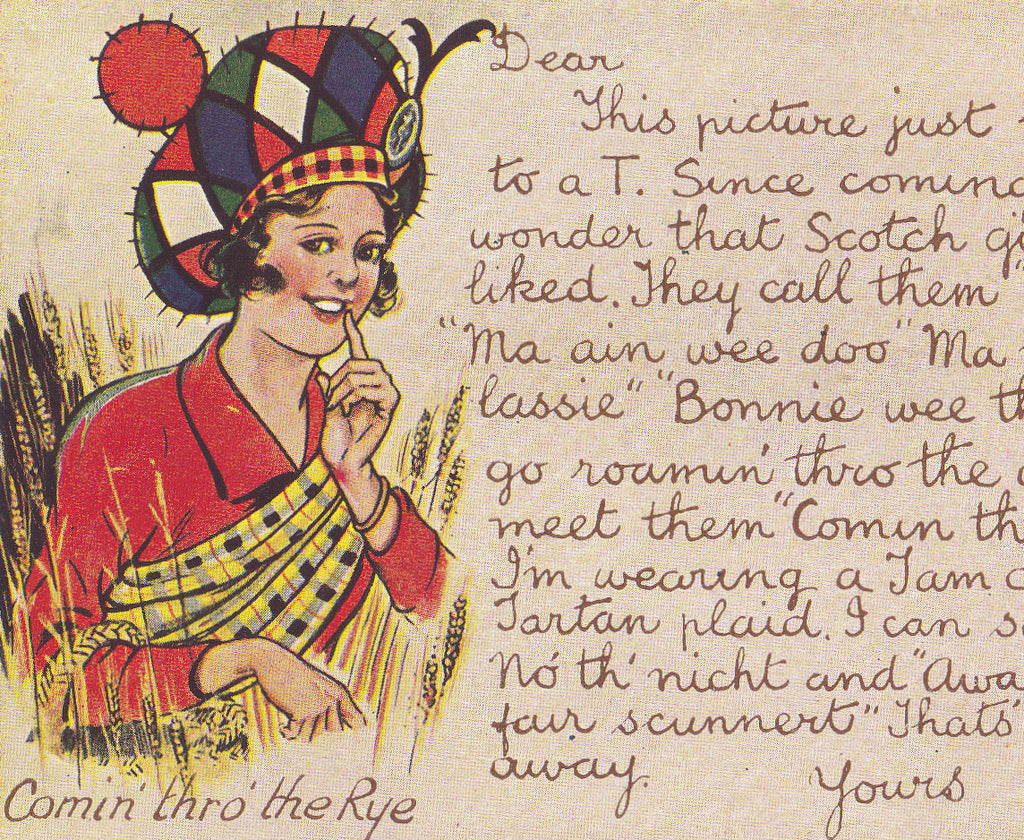 Dear
This picture just
to a T. Since coming
wonder that Scotch
liked. They call them "
"Ma ain wee doo" Ma
lassie" "Bonnie wee
go roamin' thro the
meet them "Comin
I'm wearing a Tam
Tartan plaid. I can
No' th' nicht and "Awa
fair scunnert" Thats
away.
Yours
Comin' thro' the Rye